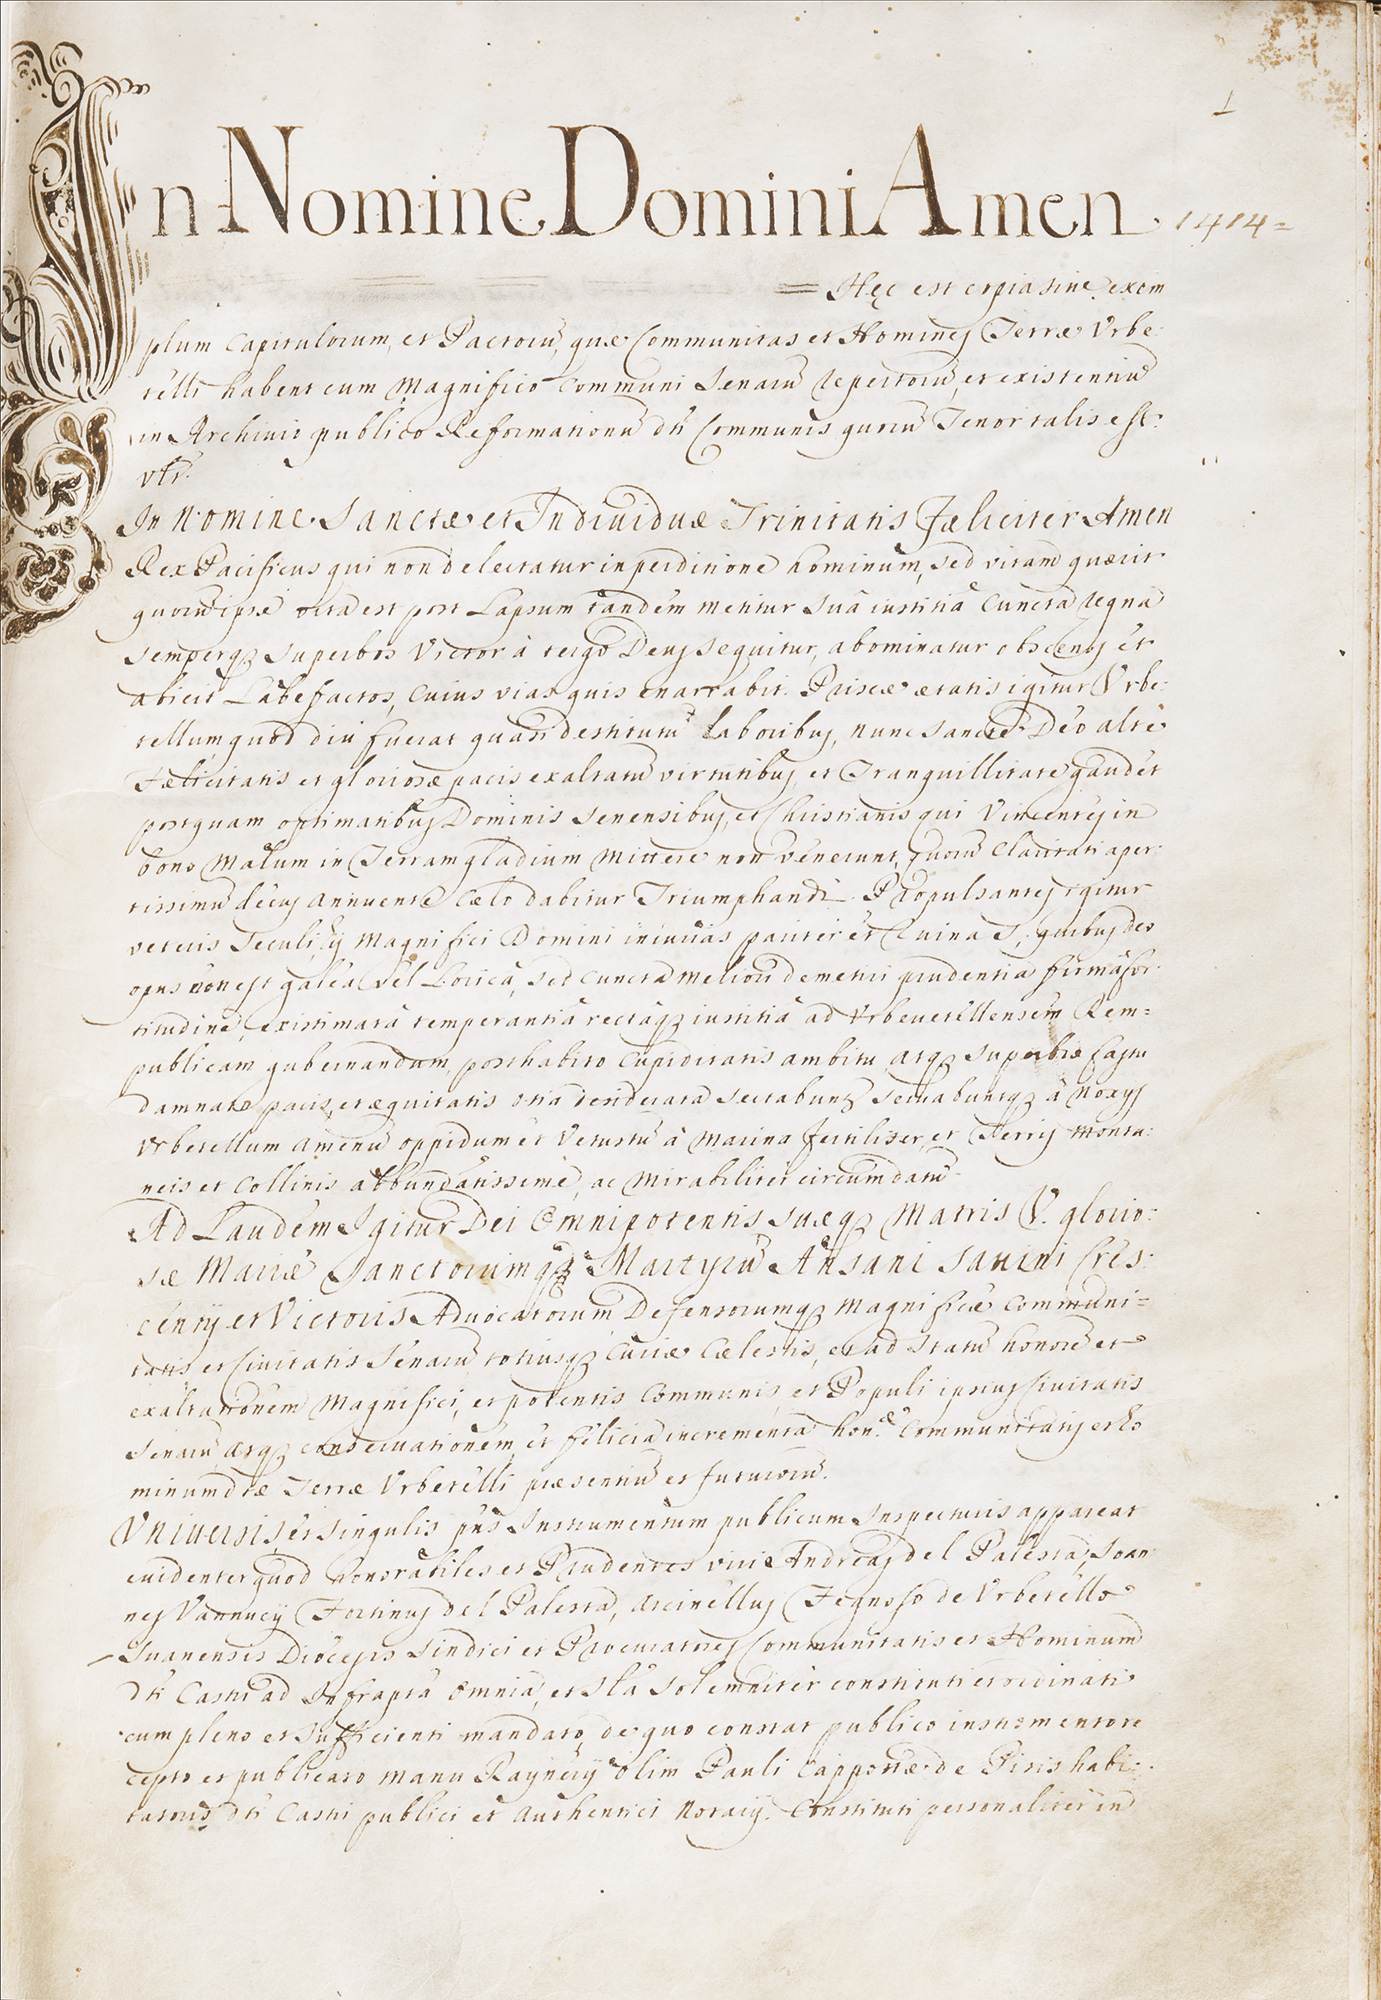 1
In Nomine Domini Amen. 1414=
= Hęc est copia sive exem
plum Capitulorum, et Pactorũ, quæ Communitas et Homines Terræ Vrbe:
telli habent cum Magnifico Communi Senarũ repertorũ, et existentiũ
in Archivio publico Reformationũ dti Communis quorũ Tenor talis est:
vtr.
In Nomine Sanctæ et Individuæ Trinitatis Fæliciter Amen
Rex Pacificus qui non delectatur in perditione hominum, sed vitam quærit
quorũ ipse vita est post Lapsum tandem metitur suâ iustitiâ Cuncta regna
semperq; superbos Victor à tergo Deus sequitur, abominatur obscenos et
abicit Labefactos, Cuius vias quis enarrabit. Priscæ ætatis igitur Vrbe:
tellum, quod diu fuerat quasi destitutũ laboribus, nunc sancte Deo alte
Fælicitatis et gloriosæ pacis exaltatũ virtutibus, et Tranquillitate gaudet
postquam optimatibus Dominis Senensibus, et Christianis qui Vincentes in
bono Malum in Terram gladium Mittere non venerunt, quorũ Claritati aper:
tissimũ decus annuente Cælo dabitur Triumphandi. Propulsantes igitur
veteris Seculi, ij Magnifici Domini iniurias pariter et Ruinas, quibus des
opus non est galea vel Lorica, sed cuncta meliori demetiri prudentia firma for:
titudine, existimatâ temperantiâ rectâq; iustitiâ ad Vrbevetellensem Rem=
publicam gubernandam, posthabito Cupiditatis ambitu atq; superbiæ fastu
damnato, pacis, et æquitatis otia desiderata sectabunt, servabuntq; â noxys
Vrbetellum amenũ oppidum et Vetustũ à marina fertiliter, et Terris monta:
neis et Collinis abbundantissime, ac Mirabiliter circumdatũ.
Ad Laudem Igitur Dei Omnipotentis, suæq; Matris V. glorio:
sæ Mariæ Sanctorumq; Martyrũ Ansani Savini Cres:
centij et Victoris Advocatorum Defensorumq; Magnificæ Communi=
tatis et Civitatis Senarũ totiusq; Curiæ Cælestis, et ad Statũ honorẽ et
exaltationem Magnifici, et potentis Communis, et Populi ipsius Civitatis
Senarũ atq; conservationem, et felicia incrementa hon.æ Communitatis et Ho
minum dtæ Terræ Vrbetelli præsentiũ et futurorũ.
Vniversis, et singulis pñs Instrumentum publicum Inspecturis appareat
evidenter quod honorabiles et Prudentes viri Andreas del Palesta, Ioan
nes Vannucij Fortinus del Palesta, Arcinellus Tegnoso de Vrbetello
Suanensis Diocesis Sindici et Procuratores Communitatis et Hominum
dti Castri ad Infrapta omnia, et Sta solemniter constituti et ordinati
cum pleno et sufficienti mandato, de quo constat publico instromento re
cepto et publicato manu Raynerij olim Pauli Capponæ de Pisis habi:
tatoris dti Castri publici et Authentici Notarij. Constituti personaliter in